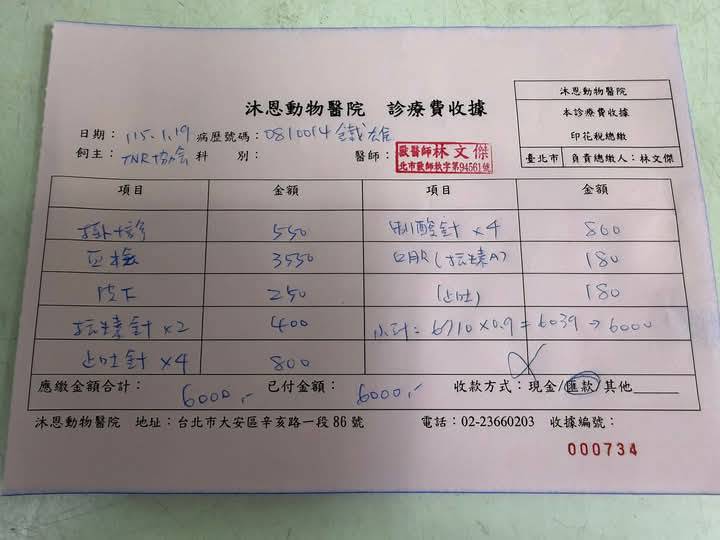 沐恩動物醫院 診療費收據
沐恩動物醫院
本診療費收據
印花稅總繳
臺北市 負責總繳人：林文傑
日期：115.1.19 病歷號碼：0810014 鐵雄
飼主：TNR協會 科 別： 醫師：
獸醫師林文傑
北市獸師執字第94561號
項目 金額 項目 金額
掛+診 550 制酸針 x4 800
血檢 3550 口服(抗生素A) 180
皮下 250 (止吐) 180
針 x2 400 小計：6710 x 0.9 = 6039 → 6000
止吐針 x4 800
應繳金額合計：6000,- 已付金額：6000,- 收款方式：現金/匯款/其他
沐恩動物醫院 地址：台北市大安區辛亥路一段86號 電話：02-23660203 收據編號：
000734